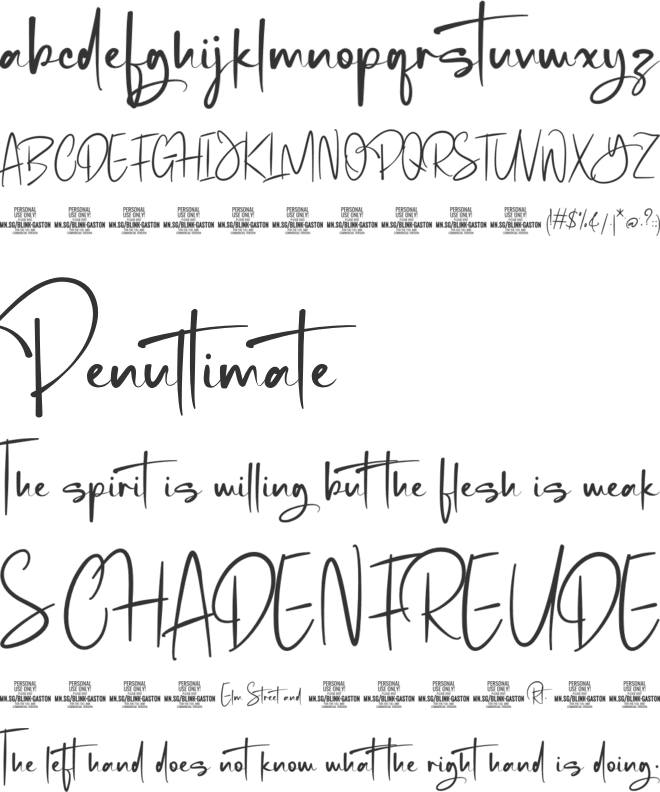 abcdefghijklmnopqrstuvwxyz
ABCDEFGHIJKLMNOPQRSTUVWXYZ
PERSONAL PERSONAL PERSONAL PERSONAL PERSONAL PERSONAL PERSONAL PERSONAL PERSONAL PERSONAL
USE ONLY! USE ONLY! USE ONLY! USE ONLY! USE ONLY! USE ONLY! USE ONLY! USE ONLY! USE ONLY! USE ONLY!
MN.SG/BLINK-GASTON MN.SG/BLINK-GASTON MN.SG/BLINK-GASTON MN.SG/BLINK-GASTON MN.SG/BLINK-GASTON MN.SG/BLINK-GASTON MN.SG/BLINK-GASTON MN.SG/BLINK-GASTON MN.SG/BLINK-GASTON MN.SG/BLINK-GASTON (!#$%&/.|*@.?:;)
Penultimate
The spirit is willing but the flesh is weak
SCHADENFREUDE
PERSONAL PERSONAL PERSONAL PERSONAL PERSONAL PERSONAL PERSONAL PERSONAL PERSONAL PERSONAL
USE ONLY! USE ONLY! USE ONLY! USE ONLY! USE ONLY! USE ONLY! USE ONLY! USE ONLY! USE ONLY! USE ONLY!
MN.SG/BLINK-GASTON MN.SG/BLINK-GASTON MN.SG/BLINK-GASTON MN.SG/BLINK-GASTON Elm Street and MN.SG/BLINK-GASTON MN.SG/BLINK-GASTON MN.SG/BLINK-GASTON MN.SG/BLINK-GASTON Rt. MN.SG/BLINK-GASTON MN.SG/BLINK-GASTON
The left hand does not know what the right hand is doing.